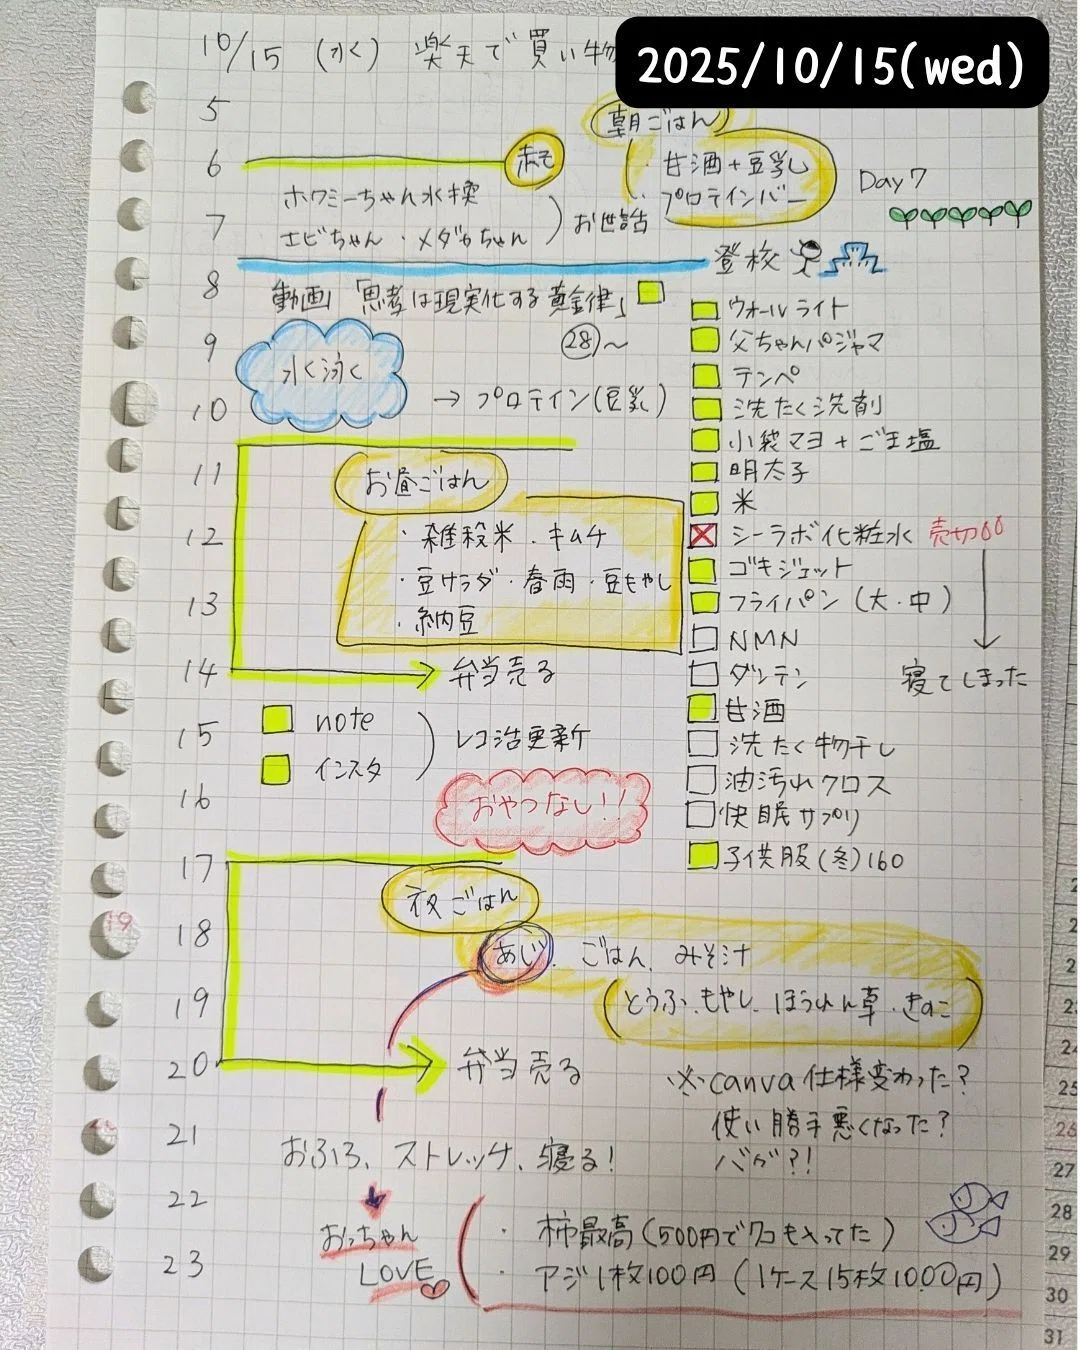 10/15 (水) 楽天で買い物
2025/10/15(wed)
5
朝ごはん
・甘酒+豆乳
・プロテインバー
6
Day 7
ホワミーちゃん水換
7
エビちゃん・メダカちゃん
お世話
登校
8
動画「思考は現実化する黄金律」
28~
9
水泳
10
→ プロテイン(豆乳)
11
お昼ごはん
12
・雑穀米・キムチ
・豆サラダ・春雨・豆もやし
13
・納豆
14
弁当売る
note
15
インスタ
レコ活更新
16
おやつなし!!
ウォールライト
父ちゃんパジャマ
テンペ
洗たく洗剤
小袋マヨ+ごま塩
明太子
米
シーラボ化粧水 売切
ゴキジェット
フライパン(大・中)
NMN
ダンテン
寝てしまった
甘酒
洗たく物干し
油汚れクロス
快眠サプリ
子供服(冬)160
17
夜ごはん
18
あじ、ごはん、みそ汁
19
(とうふ、もやし、ほうれん草・きのこ)
20
弁当売る
※canva仕様変わった?
使い勝手悪くなった?
バグ?!
21
おふろ、ストレッチ、寝る!
22
おっちゃん
LOVE
・柿最高(500円で7コも入ってた)
23
・アジ1枚100円(1ケース15枚1000円)
19
25
26
27
28
29
30
31